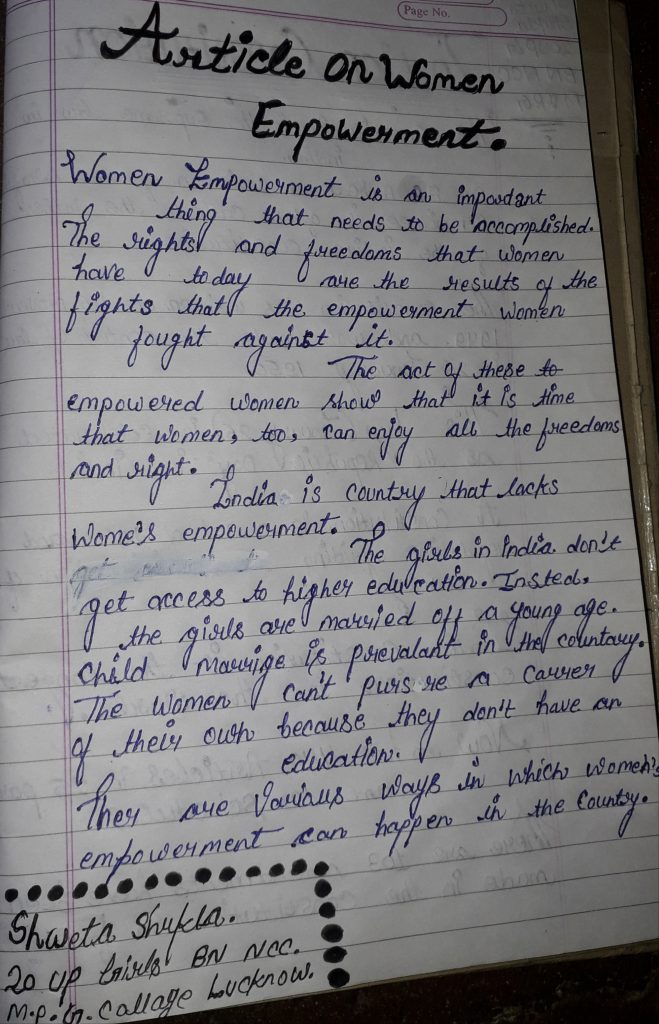 Page No.
Article On Women
Empowerment.
Women Empowerment is an impordant
thing that needs to be accomplished.
The rights and freedoms that women
have today are the results of the
fights that the empowerment women
fought against it.
The act of these to
empowered women show that it is time
that women, too, can enjoy all the freedoms
and right.
India is country that lacks
Wome's empowerment.
The girls in India don't
get access to higher education. Insted,
the girls are married off a young age.
Child marrige is prevalant in the countary.
The women can't purs re a carrer
of their own because they don't have an
education.
Ther are Various ways in which women's
empowerment can happen in the Country.
Shweta Shukla.
20 UP Girls BN NCC.
M.P.G. Callage Lucknow.